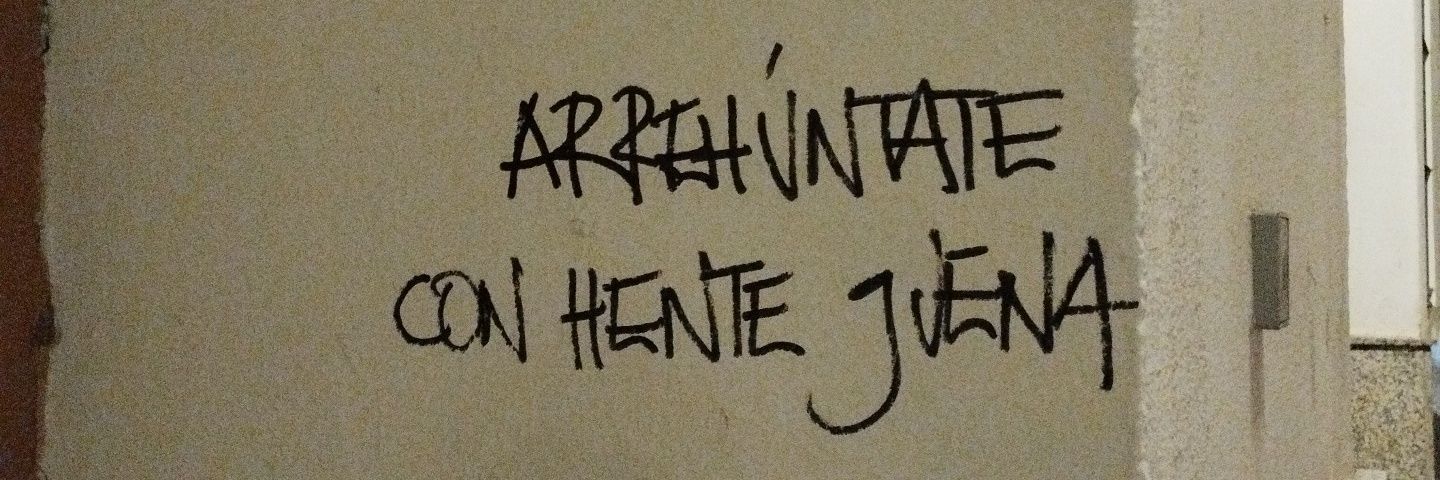 ARREHÚNTATE
CON HENTE JUENA